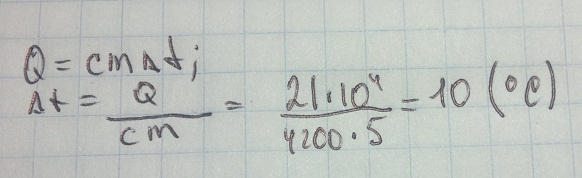 Q = cmΔt;
Δt = Q/cm = 21·10⁴/4200·5 = 10 (°C)